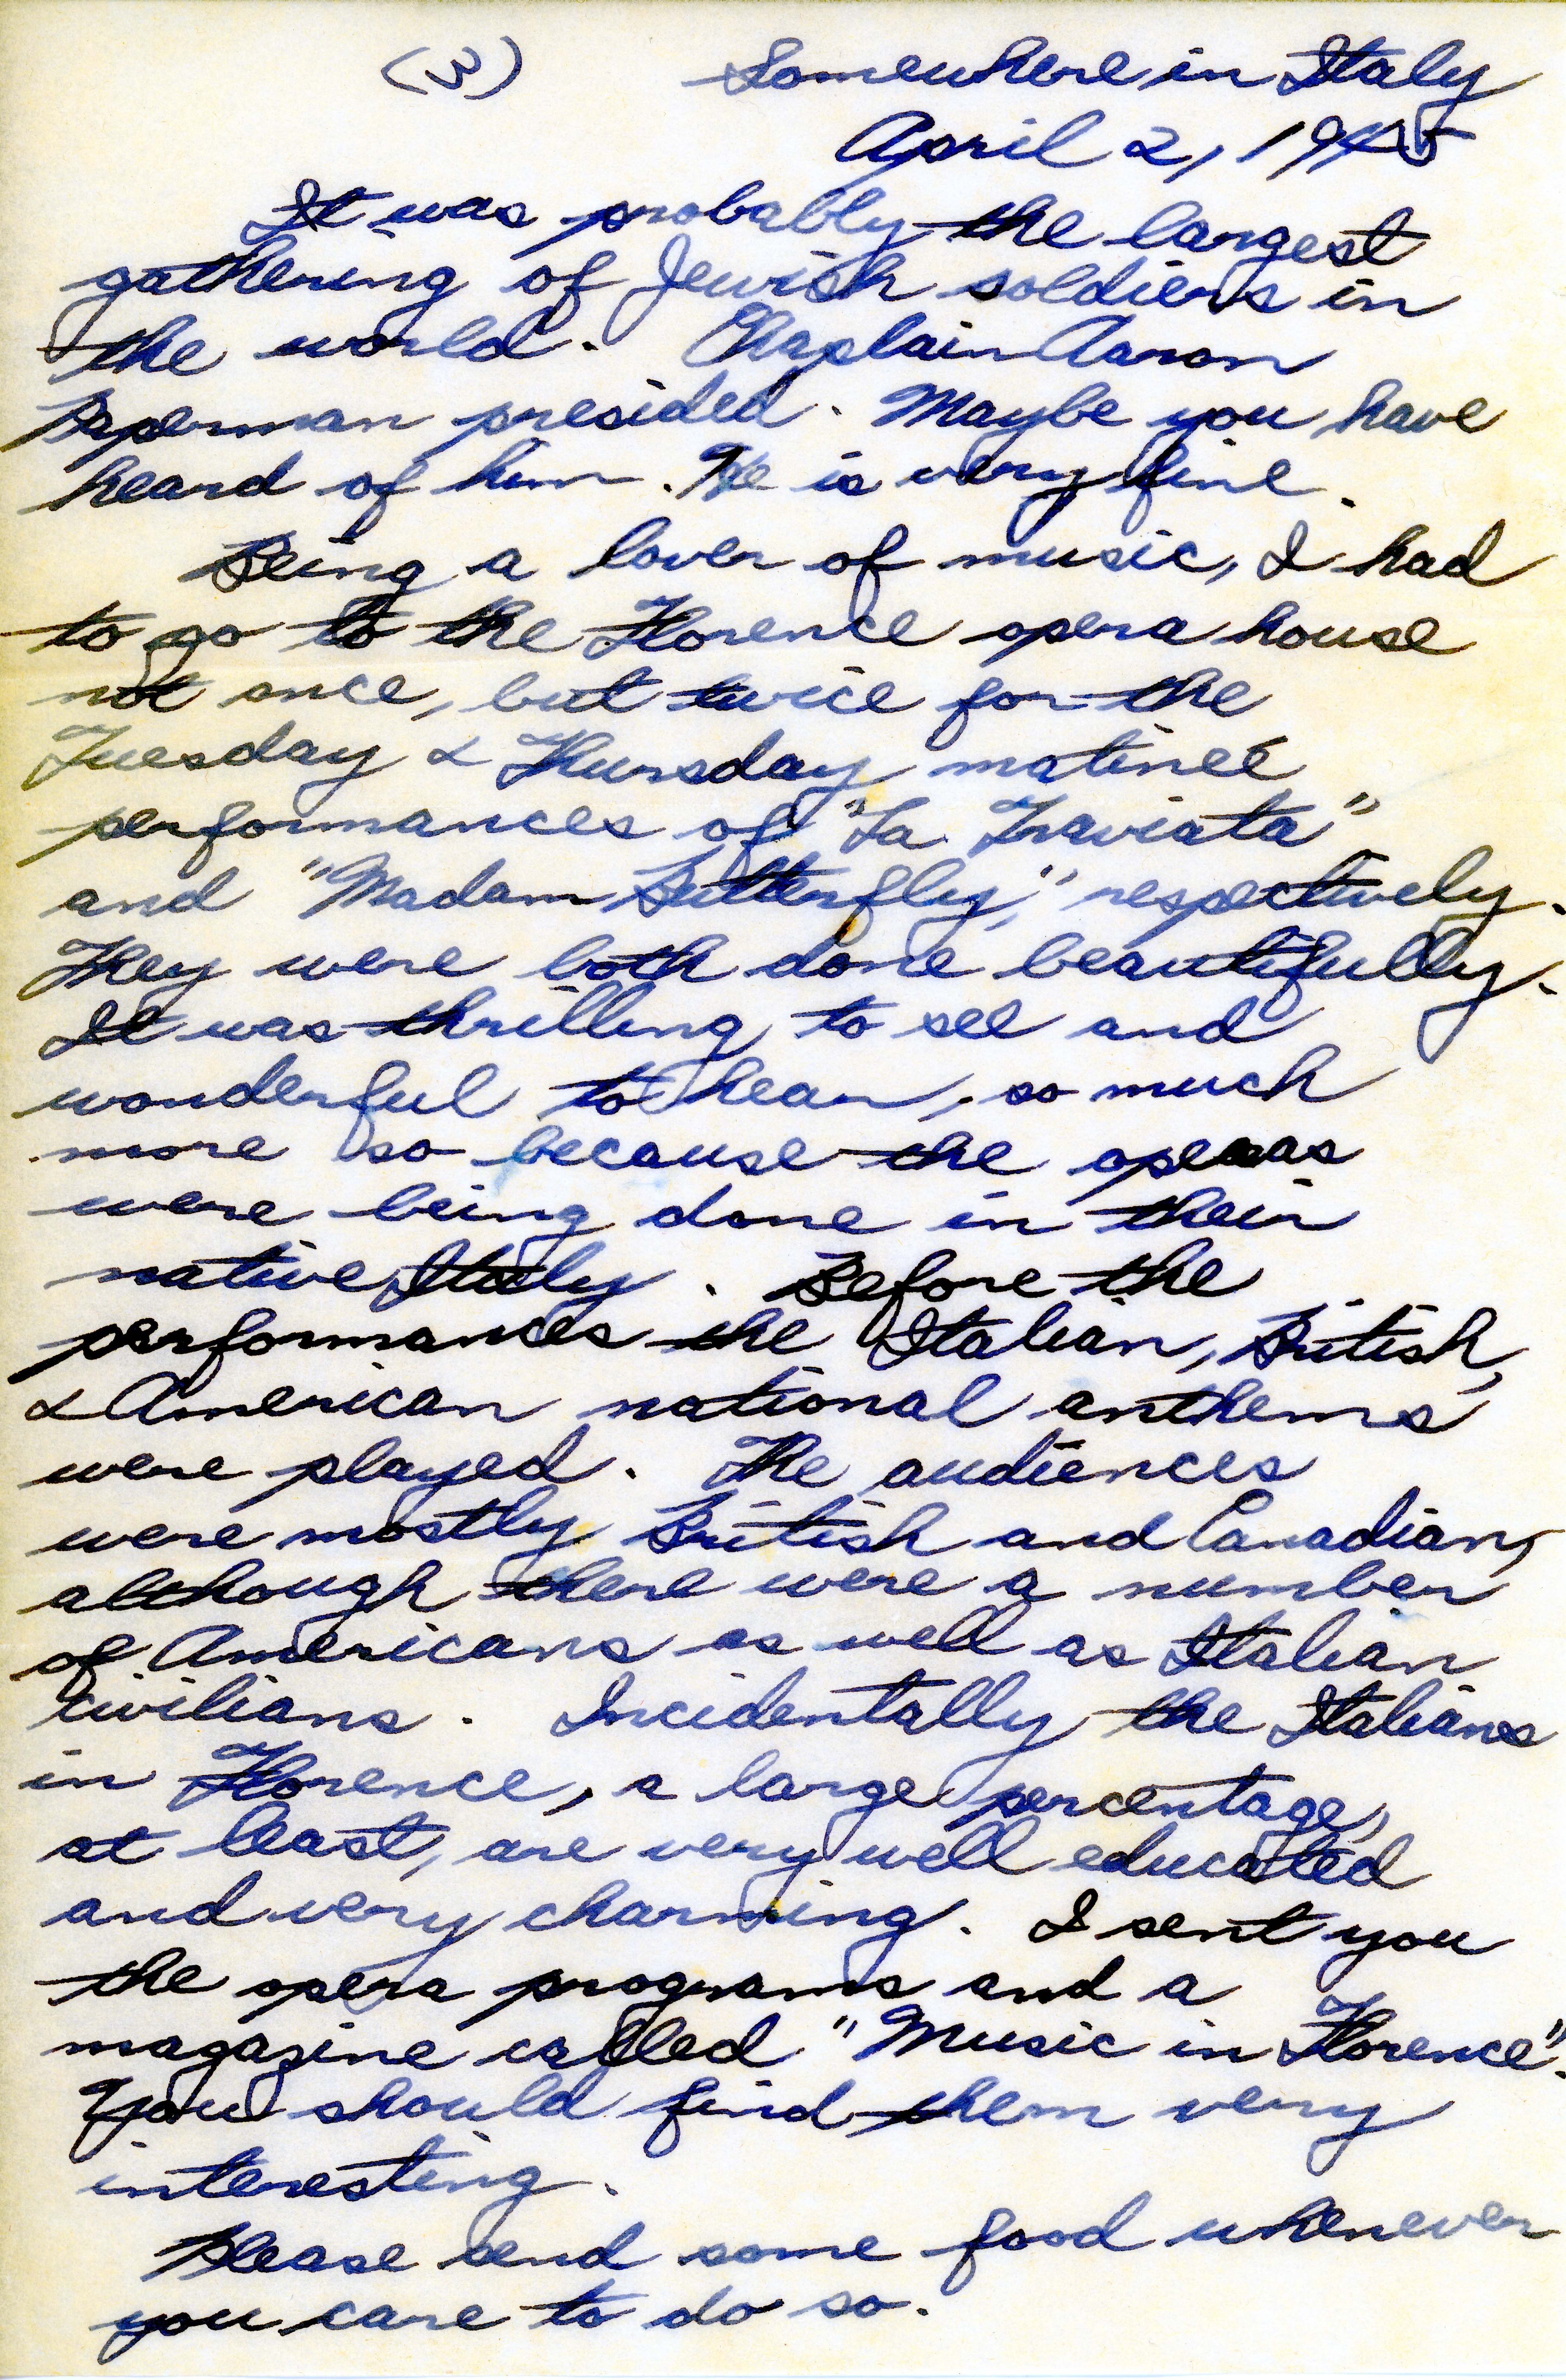 (3) Somewhere in Italy
April 2, 1945
It was probably the largest
gathering of Jewish soldiers in
the world. Chaplain Aaron
Paperman presided. Maybe you have
heard of him. He is very fine.
Being a lover of music, I had
to go to the Florence opera house
not once, but twice for the
Tuesday & Thursday matineé
performances of "La Traviata"
and "Madam Butterfly," respectively.
They were both done beautifully.
It was thrilling to see and
wonderful to hear, so much
more so because the operas
were being done in their
native Italy. Before the
performances the Italian, British,
& American national anthems
were played. The audiences
were mostly British and Canadian,
although there were a number
of Americans as well as Italian
civilians. Incidentally the Italians
in Florence, a large percentage,
at least, are very well educated
and very charming. I sent you
the opera programs and a
magazine called "Music in Florence".
You should find them very
interesting.
Please send some food whenever
you care to do so.